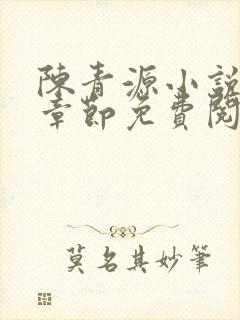 陳青源小說
章節免費閱
莫名其妙筆